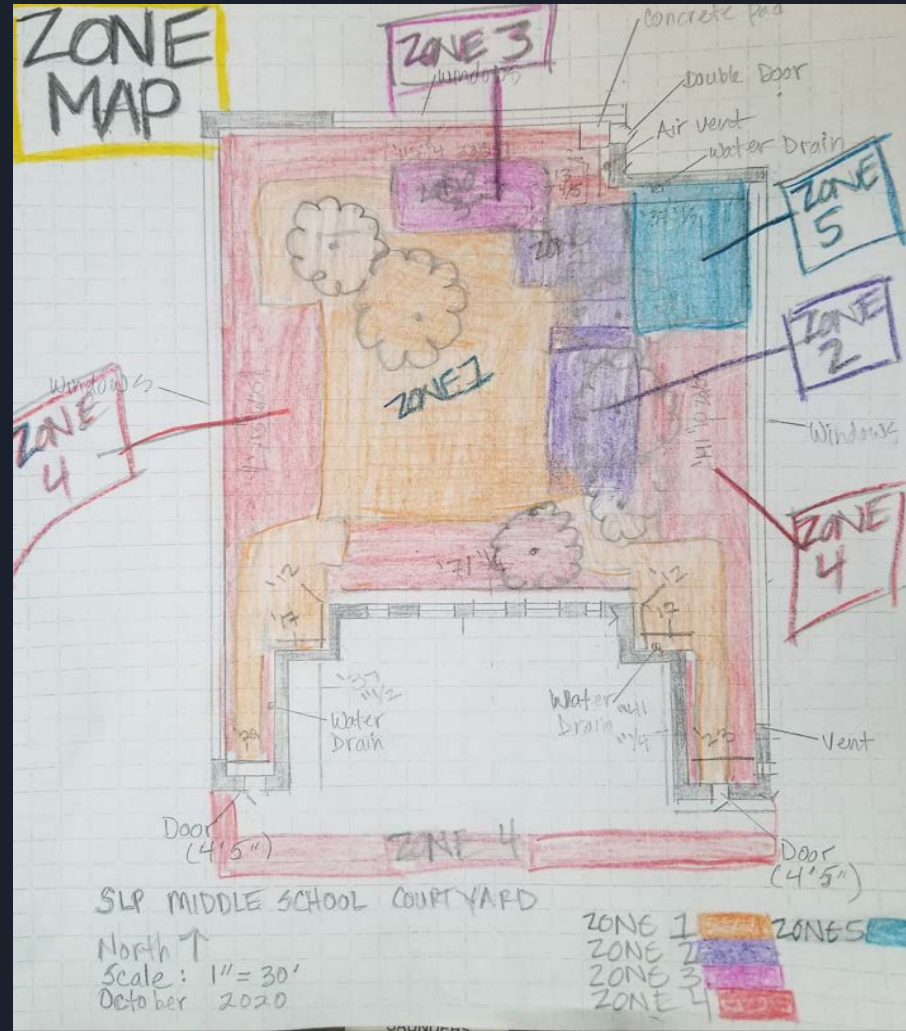 ZONE
MAP
ZONE 3
Concrete pad
Windows
Double Door
Air vent
Water Drain
ZONE
5
ZONE
2
ZONE 1
Windows
ZONE
4
Windows
ZONE
4
'71
'12
'12
'17
'37
"1/2
Water
Drain
Water
Drain
Vent
'23
Door
(4'5")
ZONE 4
Door
(4'5")
SLP MIDDLE SCHOOL COURTYARD
North ↑
Scale: 1" = 30'
October 2020
ZONE 1
ZONE 5
ZONE 2
ZONE 3
ZONE 4